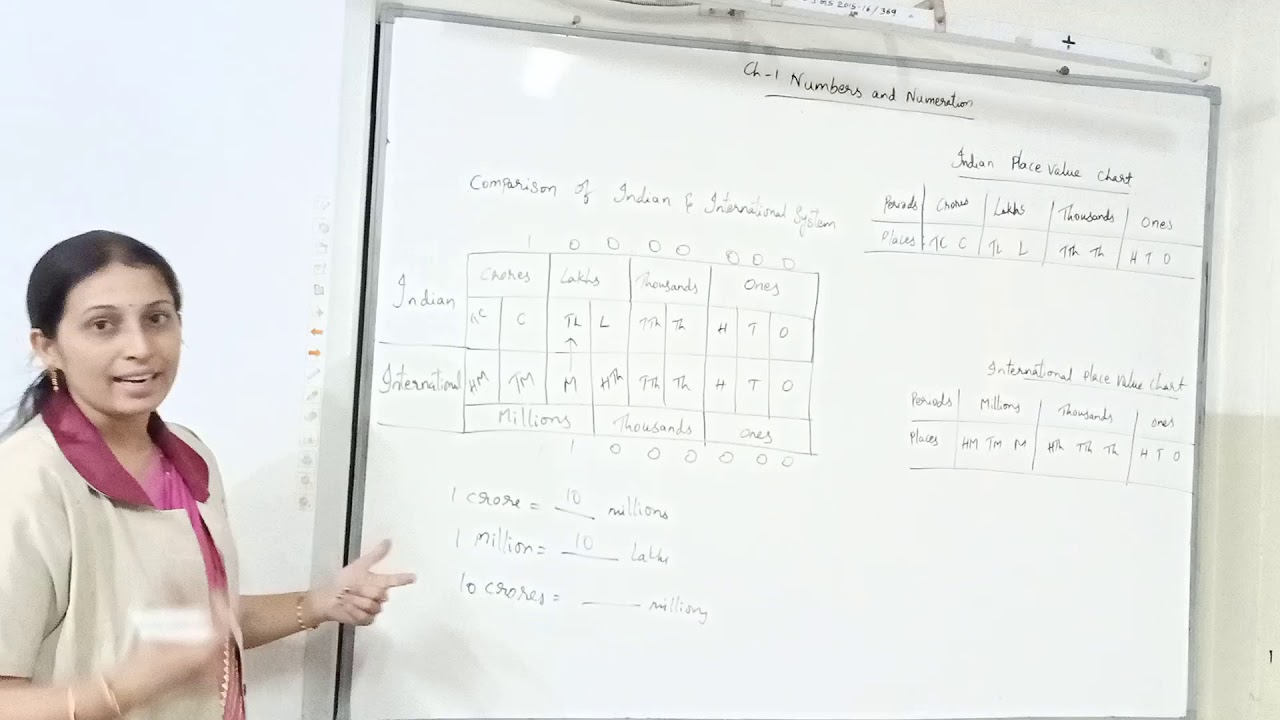 2015-16/369
Ch-1 Numbers and Numeration
Comparison of Indian & International System
1 0 0 0 0 0 0 0
Indian
Crores Lakhs Thousands Ones
TC C TL L TTh Th H T O
International
HM TM M HTh TTh Th H T O
Millions Thousands Ones
1 0 0 0 0 0 0
1 crore = 10 millions
1 million = 10 Lakhs
10 crores = ___ millions
Indian Place Value Chart
Periods Crores Lakhs Thousands Ones
Places: TC C TL L TTh Th H T O
International Place Value Chart
Periods Millions Thousands Ones
Places HM TM M HTh TTh Th H T O